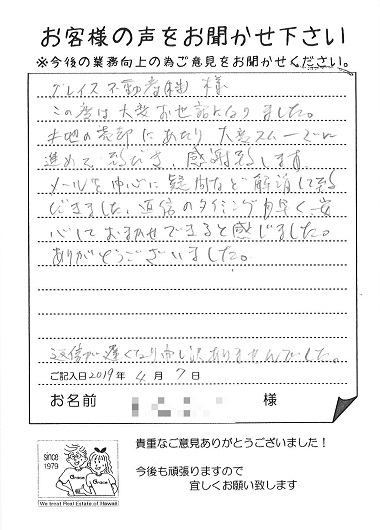 お客様の声をお聞かせ下さい
※今後の業務向上の為ご意見をお聞かせください。
グレイス不動産㈱ 様
この度は大変お世話になりました。
土地の売却にあたり大変スムーズに
進めて頂き、感謝致します。
メールを中心に疑問など解消して頂
きました。返信のタイミングも早く安
心しておまかせできると感じました。
ありがとうございました。
返信が遅くなり申し訳ありませんでした。
ご記入日2019年 4月 7日
お名前 様
since
1979
Grace
Grace
We treat Real Estate of Hawaii
貴重なご意見ありがとうございました！
今後も頑張りますので
宜しくお願い致します